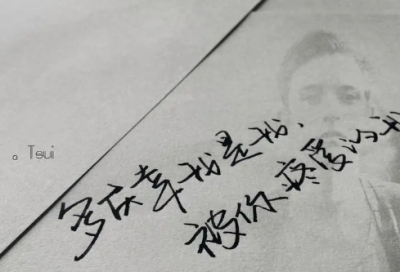 多庆幸我是我，
被你疼爱的我
。Tsui